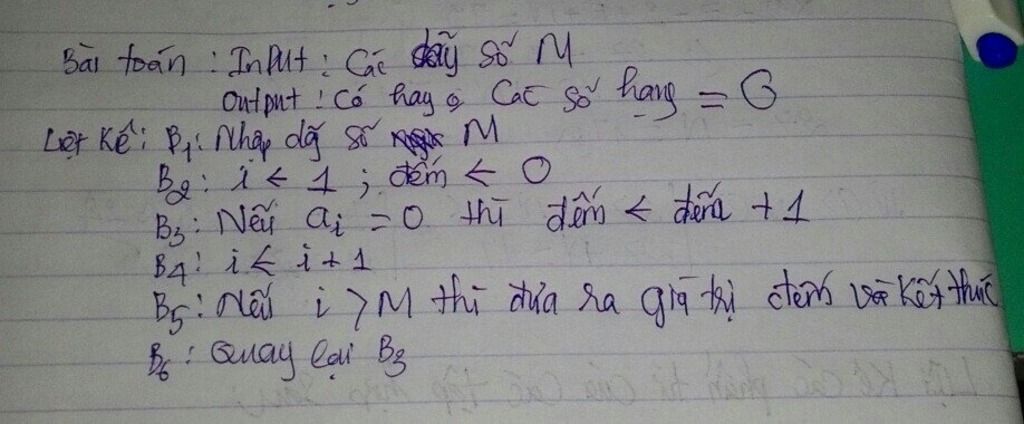 Bài toán : InPut : Các dãy số M
Output : Có hay 0 Các số hạng = 0
Liệt Kê : B1 : Nhập dã số M
B2 : i ← 1 ; đếm ← 0
B3 : Nếu ai = 0 thì đếm ← đếm + 1
B4 : i ← i + 1
B5 : Nếu i > M thì đưa ra giá trị đếm và kết thúc
B6 : Quay lại B3